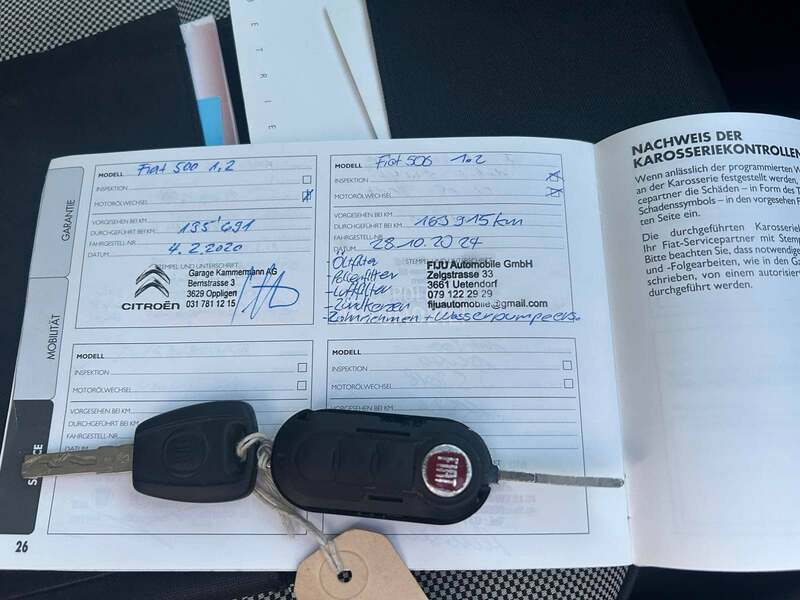 ETRIE
GARANTIE
MOBILITÄT
MODELL Fiat 500 1,2
INSPEKTION
MOTORÖLWECHSEL
VORGESEHEN BEI KM
DURCHGEFÜHRT BEI KM 135'691
FAHRGESTELL-NR.
DATUM 4.2.2020
STEMPEL UND UNTERSCHRIFT
Garage Kammermann AG
Bernstrasse 3
3629 Oppligen
031 781 12 15
CITROËN
MODELL Fiat 500 1.2
INSPEKTION
MOTORÖLWECHSEL
VORGESEHEN BEI KM
DURCHGEFÜHRT BEI KM 169915km
FAHRGESTELL-NR
DATUM 28.10.2024
-Ölfilter
-Pollenfilter
-Luftfilter
-Zündkerzen
-Zahnriemen + Wasserpumpe ers.
FIJU Automobile GmbH
Zelgstrasse 33
3661 Uetendorf
079 122 29 29
fijuautomobile@gmail.com
MODELL
INSPEKTION
MOTORÖLWECHSEL
VORGESEHEN BEI KM
DURCHGEFÜHRT BEI KM
FAHRGESTELL-NR
DATUM
MODELL
INSPEKTION
MOTORÖLWECHSEL
VORGESEHEN BEI KM
FIAT
26
NACHWEIS DER
KAROSSERIEKONTROLLEN
Wenn anlässlich der programmierten W
an der Karosserie festgestellt werden,
cepartner die Schäden – in Form des T
Schadenssymbols – in den vorgesehen F
ten Seite ein.
Die durchgeführten Karosseriek
Ihr Fiat-Servicepartner mit Stemp
Bitte beachten Sie, dass notwendige
und -Folgearbeiten, wie in den Ga
schrieben, von einem autorisier
durchgeführt werden.